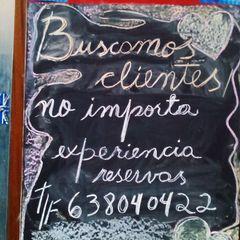 Buscamos
clientes
no importa
experiencia
reservas
T/F. 638040422